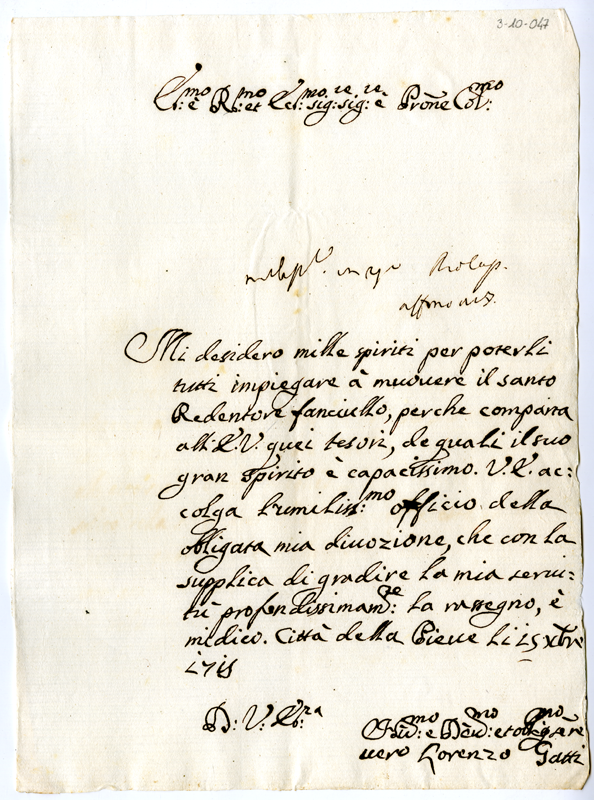 3-10-047
E:mo è R:mo et Ecc:mo sig:re sig:re è Prōne Col:mo
Mi desidero mille spiriti per poterli
tutti impiegare à muouere il santo
Redentore fanciullo, perche comparta
all'E.V. quei tesori, de quali il suo
gran spirito è capacissimo. V.E. ac:
colga l'umiliss:mo officio della
obligata mia diuozione, che con la
supplica di gradire la mia serui:
tù profondissimam:te la rassegno, è
mi dico. Città della Pieue li 25 xbre
1715
D: V: E:
uero Lorenzo Gatti